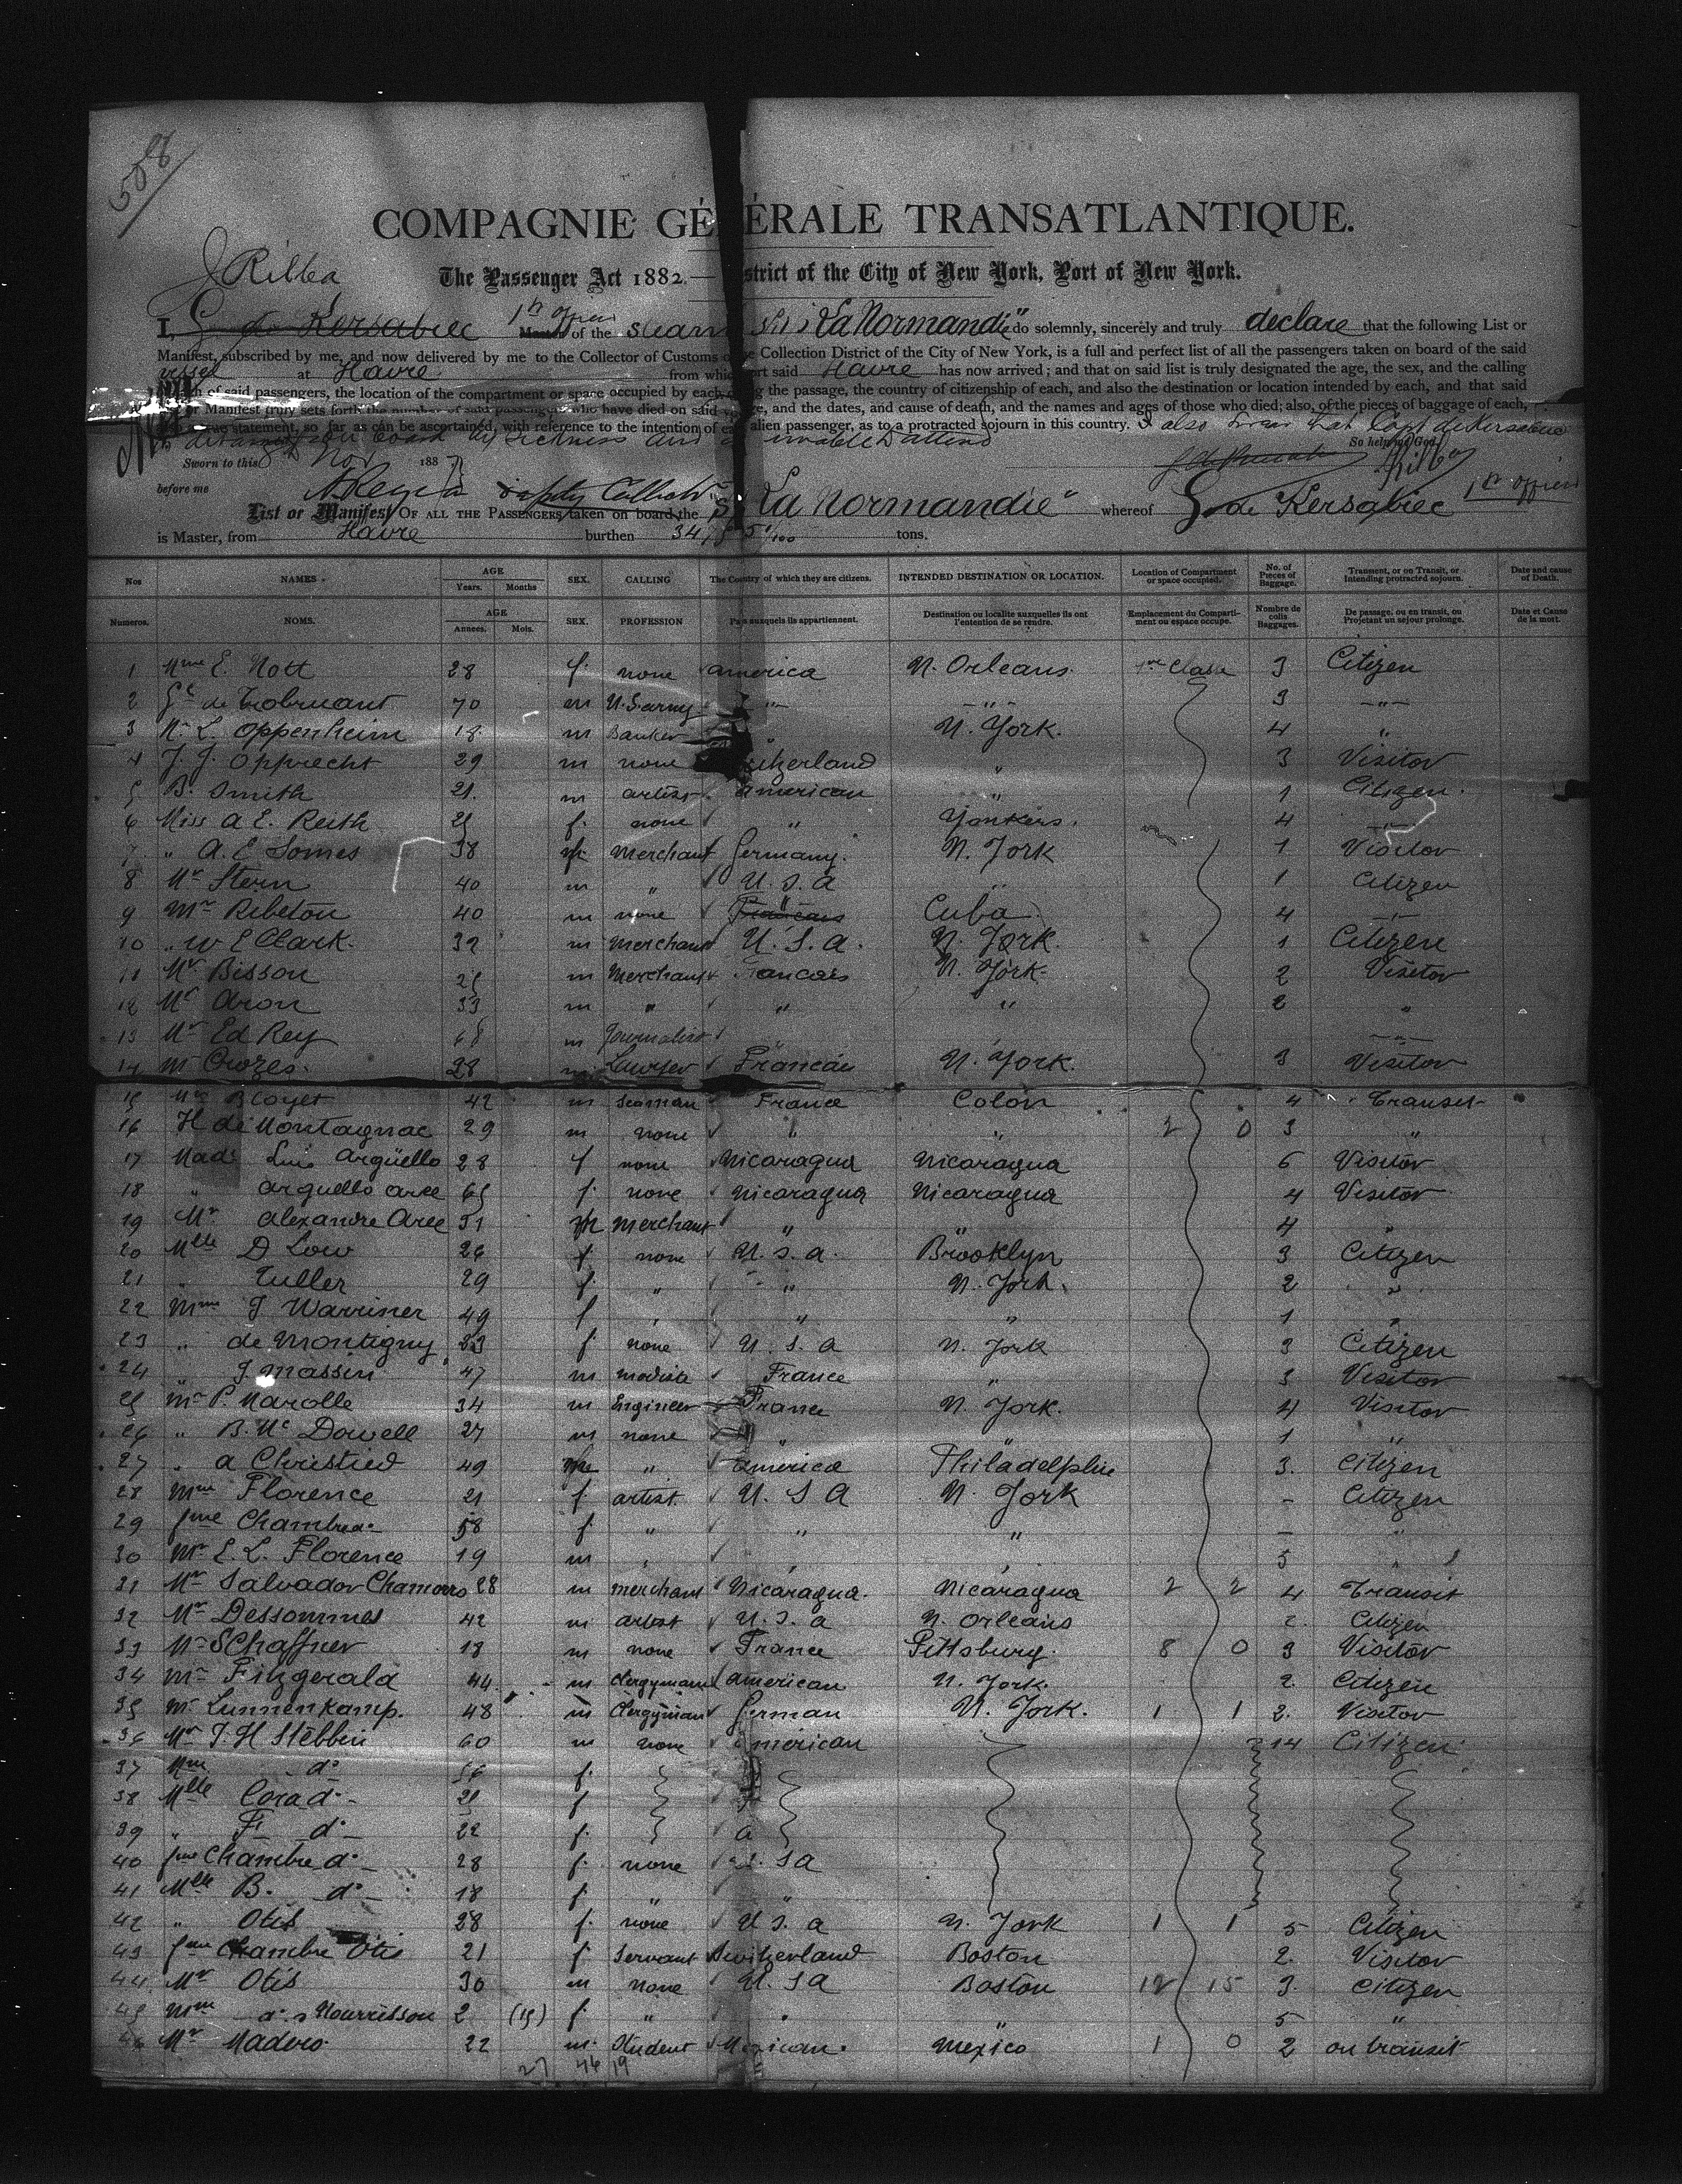 508
COMPAGNIE GÉ ÉRALE TRANSATLANTIQUE.
J Rilba
The Passenger Act 1882.— strict of the City of New York, Port of New York.
I, G de Kersabiec 1st officer Master of the steam "La Normandie" do solemnly, sincerely and truly declare that the following List or
Manifest, subscribed by me, and now delivered by me to the Collector of Customs Collection District of the City of New York, is a full and perfect list of all the passengers taken on board of the said
vessel at Havre from which ort said Havre has now arrived; and that on said list is truly designated the age, the sex, and the calling
of said passengers, the location of the compartment or space occupied by each, the passage, the country of citizenship of each, and also the destination or location intended by each, and that said
or Manifest truly sets forth the number of said passengers who have died on said and the dates, and cause of death, and the names and ages of those who died; also, of the pieces of baggage of each,
true statement, so far as can be ascertained, with reference to the intention of alien passenger, as to a protracted sojourn in this country. I also that Capt de Kersabiec
on board by sickness and is unable to attend So help me God.
Sworn to this 8th Nov 1887
before me deputy Collector G. de Kersabiec 1st officer
List or Manifest OF ALL THE PASSENGERS taken on board the "La Normandie" whereof
is Master, from Havre burthen 34 tons.
Nos NAMES AGE Years. Months SEX. CALLING The Country of which they are citizens. INTENDED DESTINATION OR LOCATION. Location of Compartment or space occupied. No. of Pieces of Baggage. Transient, or on Transit, or Intending protracted sojourn. Date and cause of Death.
Numeros. NOMS. AGE Annees. Mois. SEX. PROFESSION Pays auxquels ils appartiennent. Destination ou localite auxquelles ils ont l'entention de se rendre. Emplacement du Comparti-ment ou espace occupe. Nombre de colis Baggages. De passage, ou en transit, ou Projetant un sejour prolonge. Date et Cause de la mort.
1 Mme E. Nott 28 f. none america N. Orleans. 1re Classe 3 Citizen
2 Gl de Trobriant 70 m U.S army " -"- 3 -"-
3 Mr L. Oppenheim 18 m Banker N. York. 4 "
4 J. J. Opprecht 29 m none itzerland " 3 Visitor
5 B. Smith 21. m artist american " 1 Citizen.
6 Miss A E. Reith f. none " Yonkers. 4
7 " A. E Somes 38 m merchant Germany. N. York 1 Visitor
8 Mr Stern 40 m " U. S. A " 1 Citizen
9 Mr Ribeton 40 m none Francais " Cuba 4 -"-
10 " W E Clark. 32 m merchant U. S. A. N. York. 1 Citizen
11 Mr Bisson 25 m merchant Francais N. York. 2 Visitor
12 Mr Aron 33 m " " " 2 "
13 Mr Ed Rey m Journalist -"-
14 Mr Crozes. 28 m Lawyer Francais N. York. 3 Visitor
15 Mr Bloyet 42 m seaman France Colon 4 Transit
16 H de Montagnac 29 m none " " 2 0 3 "
17 Made Luis Argüello 28 f none Nicaragua Nicaragua 6 Visitor
18 " arguello arce 65 f. none Nicaragua Nicaragua 4 Visitor
19 Mr alexandre Arce 31 m merchant " " 4 "
20 Mlle D Low 26 f. none U. S. a. Brooklyn 3 Citizen
21 " Tuller 29 f. " " N. York. 2 "
22 Mme J Warriner 49 f " " 1 "
23 " de Montigny 23 f. none U. S. A N. York 3 Citizen
24 " J Massin 47 m modiste France " 3 Visitor
25 Mr P. Marolle 34 m Engineer France N. York. 4 Visitor
26 " B. Mc Dowell 27 m none " " 1 "
27 " A Christied 49 " America Philadelphie 3. Citizen
28 Mme Florence 21 f. artist U. S A N. York - Citizen
29 fme Chambre do 58 f. " " " - "
30 Mr E. L. Florence 19 m " " " 5 "
31 Mr Salvador Chamorro 28 m merchant Nicaragua. Nicaragua 2 2 4 Transit
32 Mr Dessommes 42 m artist U. S. a N. Orleans 2. Citizen
33 Mr SChaffner 18 m none France Pittsburg. 8 0 3 Visitor
34 Mr Fitzgerald 44. m Clergyman american N. York. 2. Citizen
35 Mr Lunnenkamp. 48 m Clergyman German N. York. 1 1 2. Visitor
36 Mr J. H Stebbin 60 m none american 14 Citizen
37 Mme do 56 f.
38 Mlle Cora do - 21 f
39 " F. do - 22 f. a
40 fme Chambre do - 28 f. none U. S A
41 Mlle B. do - 18 f. " "
42 " Otis 28 f. none U S. a N. York 1 1 5 Citizen
43 fme Chambre Otis 21 f servant Switzerland Boston 2. Visitor
44 Mr Otis 30 m none U. S A Boston 12 15 3. Citizen
45 Mme do & Nourrisson 2 (15) f. " " " 5 "
46 Mr Madero 22 m. Student Mexican. Mexico 1 0 2 on transit
27 46 19